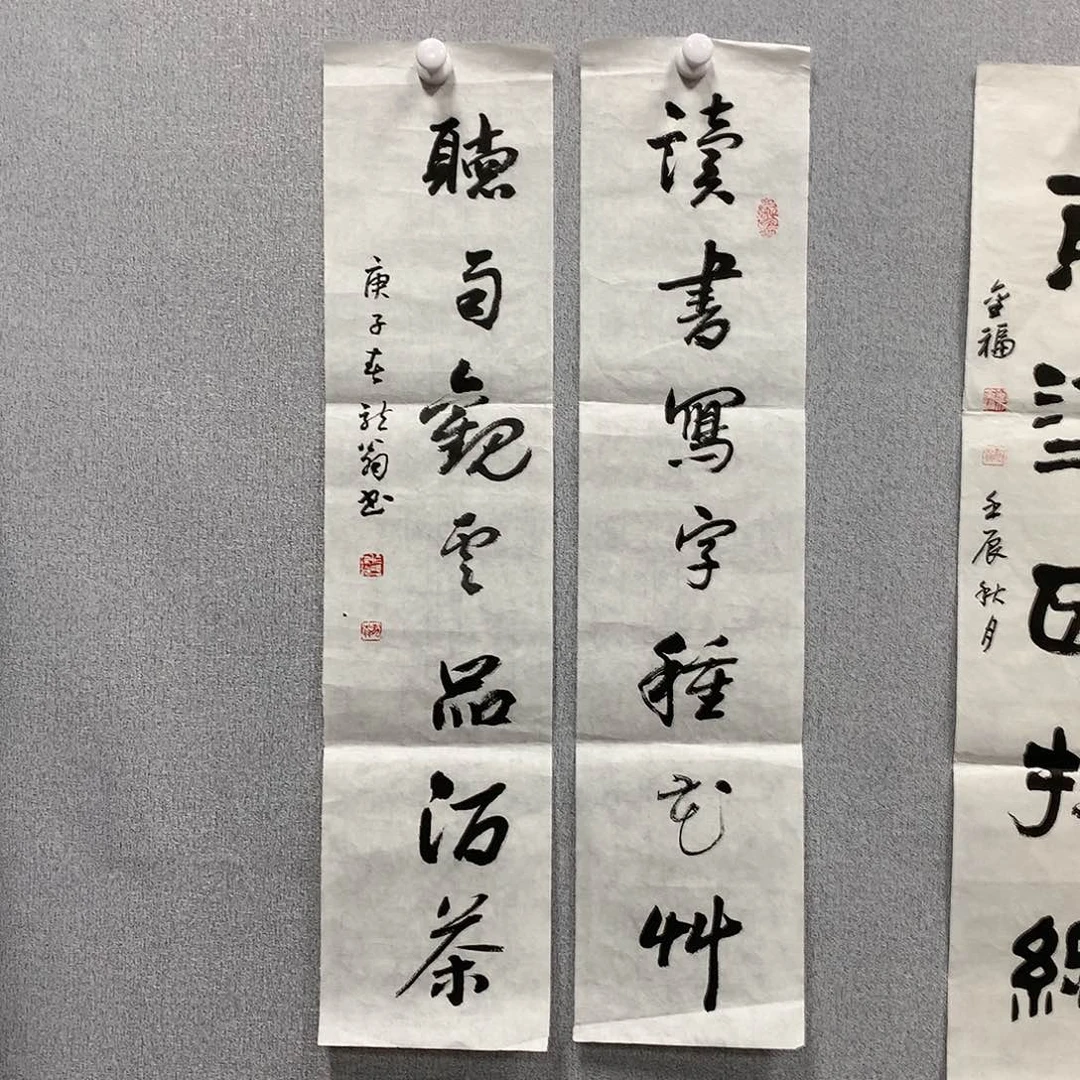 金福 壬辰秋月
讀書寫字種花艸
聽雨觀雲品酒茶
庚子春龍翁书